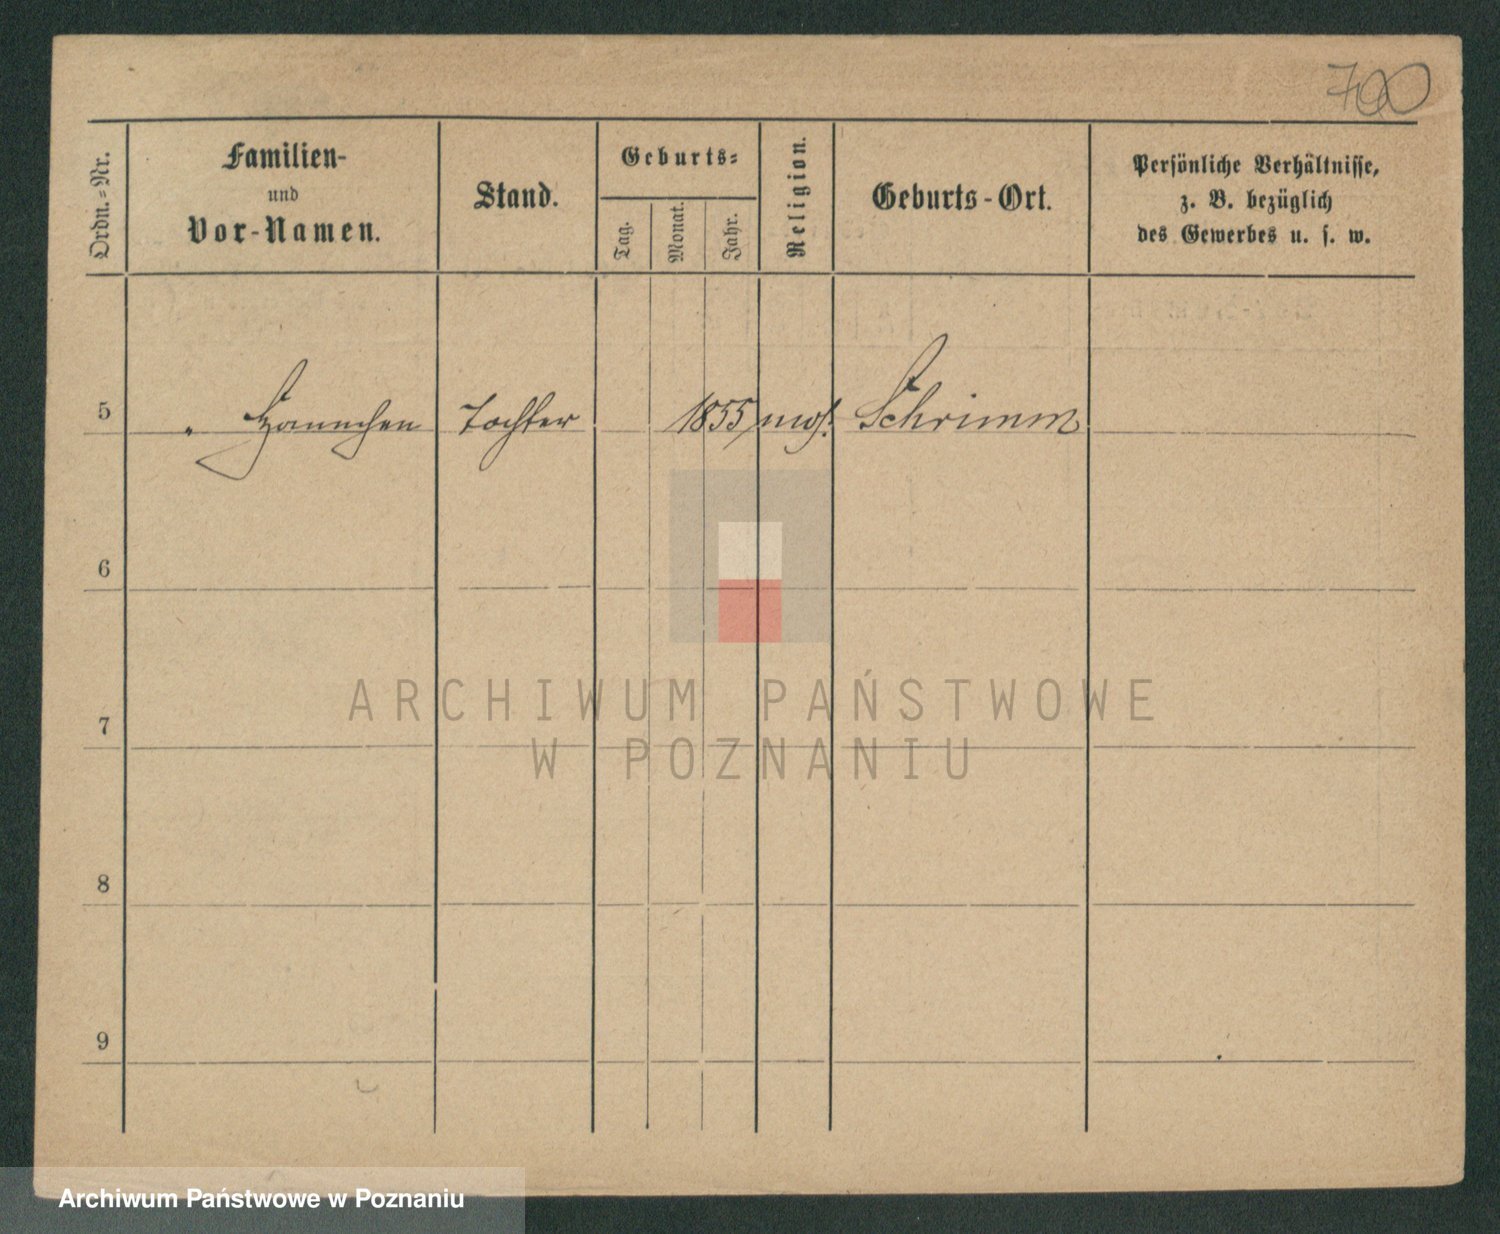 700
Ordn.-Nr.
Familien-
und
Vor-Namen.
Stand.
Geburts-
Tag.
Monat.
Jahr.
Religion.
Geburts-Ort.
Persönliche Verhältnisse,
z. B. bezüglich
des Gewerbes u. s. w.
5 " Hannchen Tochter 1855 mos. Schrimm
6
7
8
9
ARCHIWUM PAŃSTWOWE
W POZNANIU
Archiwum Państwowe w Poznaniu